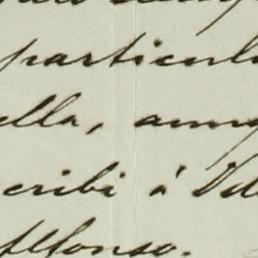 particul
ella, aunq
cribi á Vd
Alfonso.